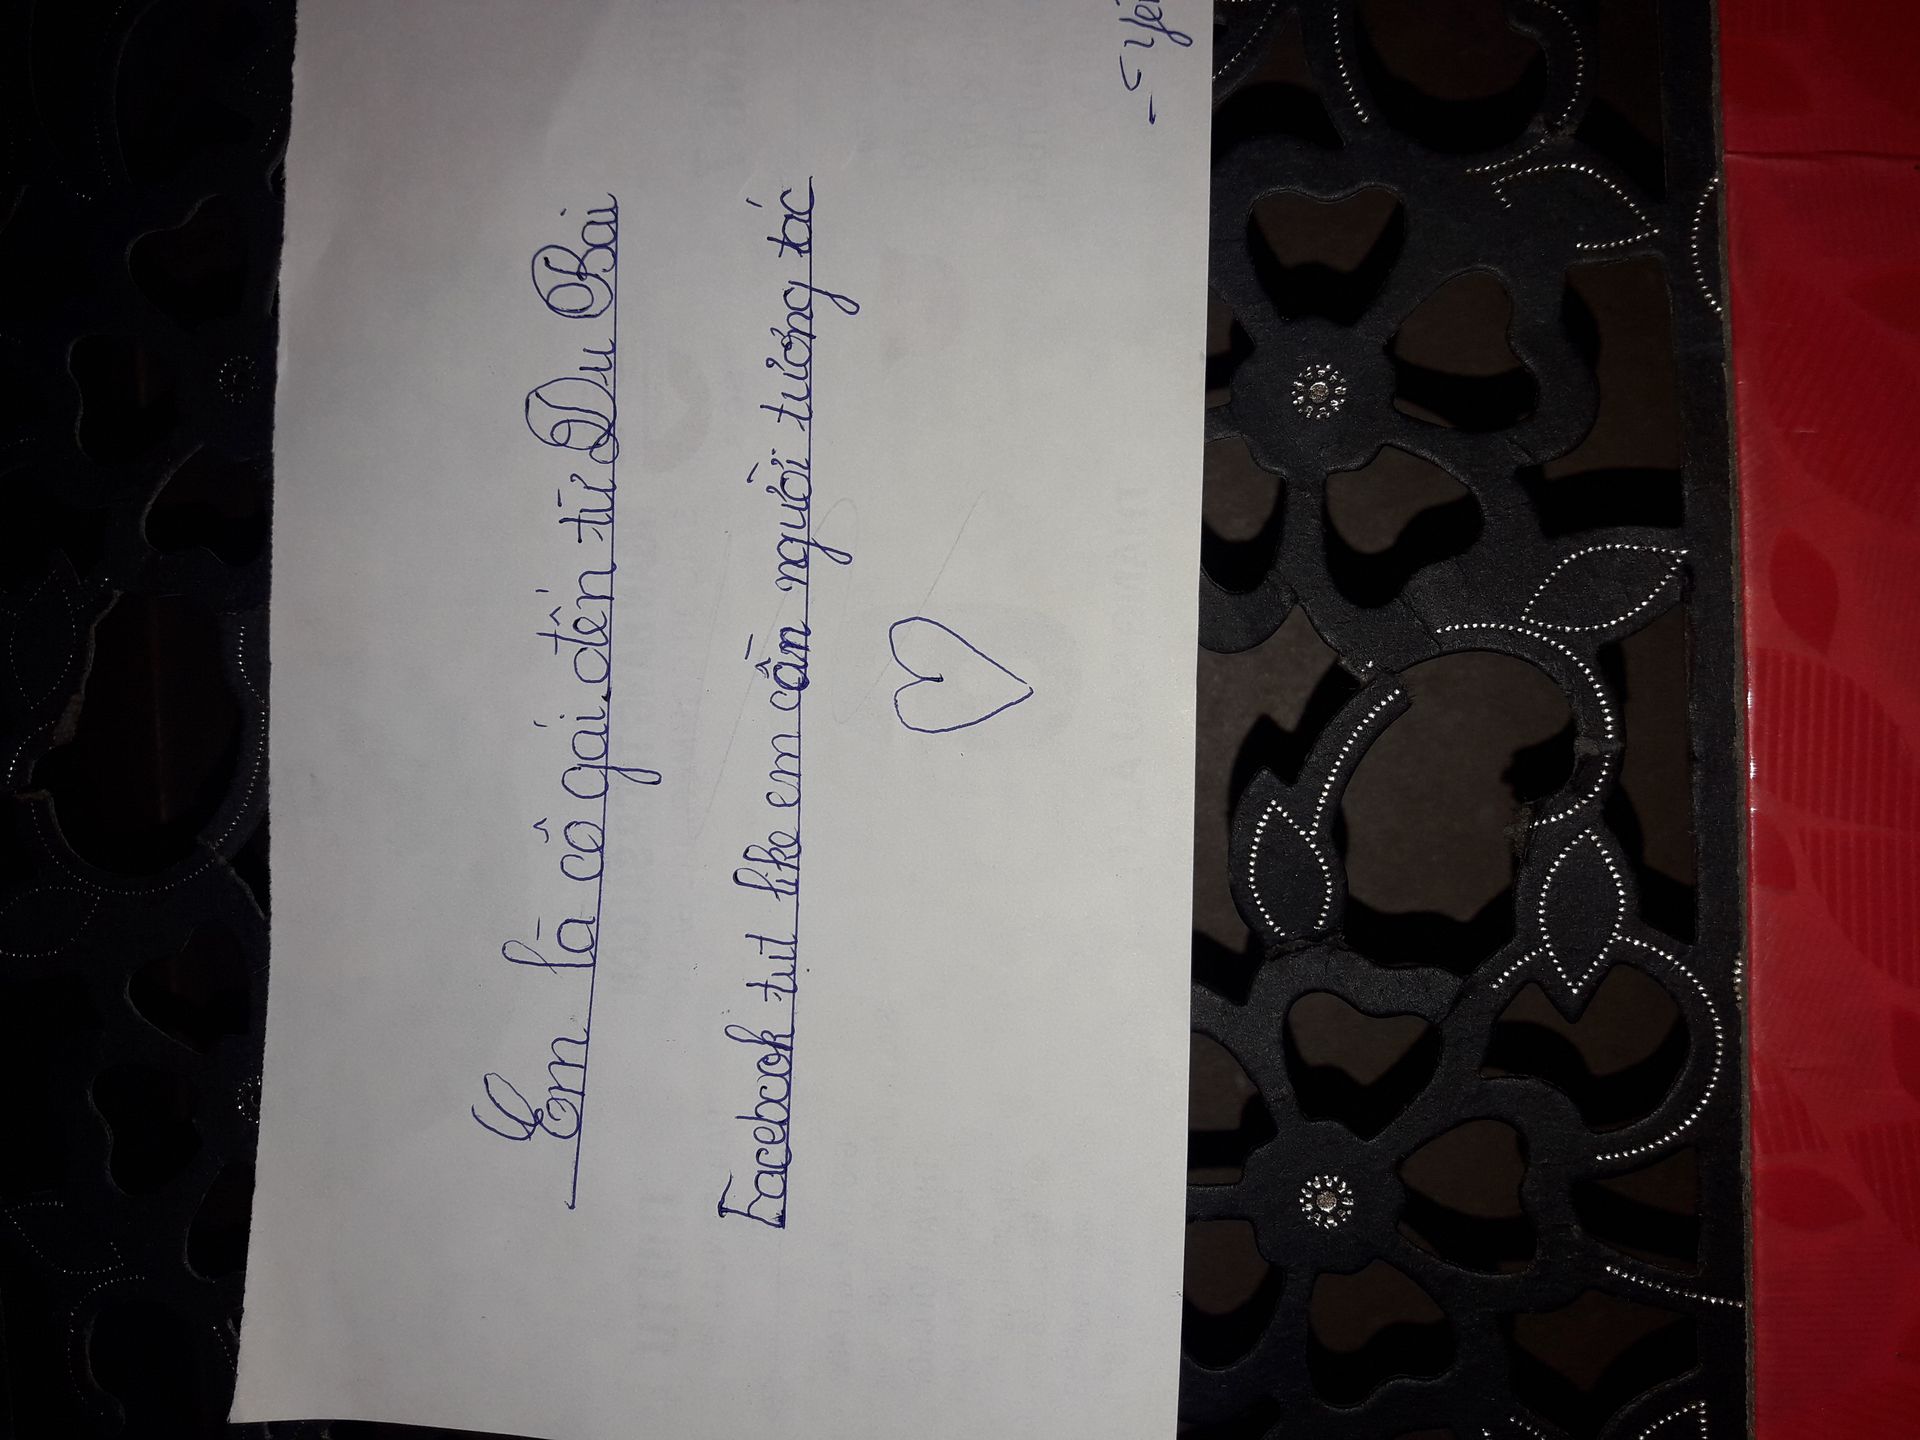 Em là cô gái đến từ Du Bai
Facebook tut like em cần người tương tác